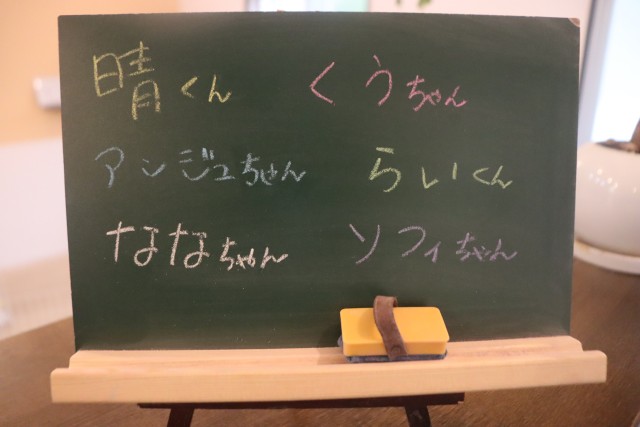 晴くん くうちゃん
アンジュちゃん らいくん
ななちゃん ソフィちゃん